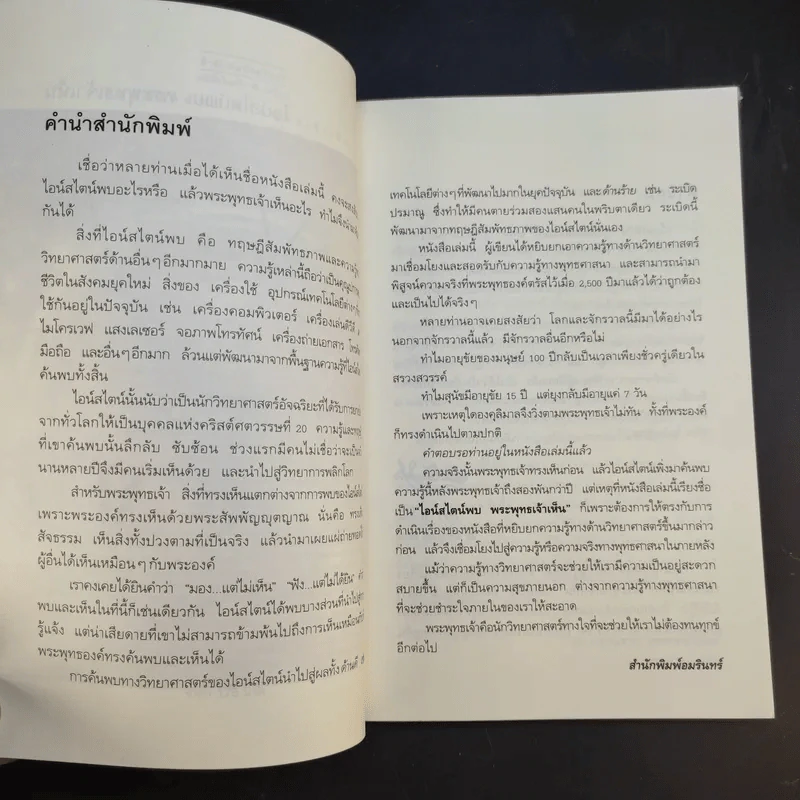 คำนำสำนักพิมพ์
เชื่อว่าหลายท่านเมื่อได้เห็นชื่อหนังสือเล่มนี้ คงจะสงสัย
ไอน์สไตน์พบอะไรหรือ แล้วพระพุทธเจ้าเห็นอะไร ทำไมจึงมา
กันได้
สิ่งที่ไอน์สไตน์พบ คือ ทฤษฎีสัมพัทธภาพและความรู้
วิทยาศาสตร์ด้านอื่นๆ อีกมากมาย ความรู้เหล่านี้ถือว่าเป็น
ชีวิตในสังคมยุคใหม่ สิ่งของ เครื่องใช้ อุปกรณ์เทคโนโลยีต่างๆ
ใช้กันอยู่ในปัจจุบัน เช่น เครื่องคอมพิวเตอร์ เครื่องเล่นดีวีดี
ไมโครเวฟ แสงเลเซอร์ จอภาพโทรทัศน์ เครื่องถ่ายเอกสาร
มือถือ และอื่นๆ อีกมาก ล้วนแต่พัฒนามาจากพื้นฐานความรู้ที่
ค้นพบทั้งสิ้น
ไอน์สไตน์นั้นนับว่าเป็นนักวิทยาศาสตร์อัจฉริยะที่ได้รับการ
จากทั่วโลกให้เป็นบุคคลแห่งคริสต์ศตวรรษที่ 20 ความรู้และ
ที่เขาค้นพบนั้นลึกลับ ซับซ้อน ช่วงแรกมีคนไม่เชื่อว่าจะเป็น
นานหลายปีจึงมีคนเริ่มเห็นด้วย และนำไปสู่วิทยาการพลิกโลก
สำหรับพระพุทธเจ้า สิ่งที่ทรงเห็นแตกต่างจากการพบของ
เพราะพระองค์ทรงเห็นด้วยพระสัพพัญญุตญาณ นั่นคือ
สัจธรรม เห็นสิ่งทั้งปวงตามที่เป็นจริง แล้วนำมาเผยแผ่
ผู้อื่นได้เห็นเหมือนๆ กับพระองค์
เราคงเคยได้ยินคำว่า "มอง...แต่ไม่เห็น" "ฟัง...แต่ไม่ได้ยิน"
พบและเห็นในที่นี้ก็เช่นเดียวกัน ไอน์สไตน์ได้พบบางส่วนที่นำไปสู่
รู้แจ้ง แต่น่าเสียดายที่เขาไม่สามารถข้ามพ้นไปถึงการเห็นเหมือน
พระพุทธองค์ทรงค้นพบและเห็นได้
การค้นพบทางวิทยาศาสตร์ของไอน์สไตน์นำไปสู่ผลทั้งด้านดี
เทคโนโลยีต่างๆ ที่พัฒนาไปมากในยุคปัจจุบัน และด้านร้าย เช่น ระเบิด
ปรมาณู ซึ่งทำให้มีคนตายร่วมสองแสนคนในพริบตาเดียว ระเบิดนี้
พัฒนามาจากทฤษฎีสัมพัทธภาพของไอน์สไตน์นั่นเอง
หนังสือเล่มนี้ ผู้เขียนได้หยิบยกเอาความรู้ทางด้านวิทยาศาสตร์
มาเชื่อมโยงและสอดรับกับความรู้ทางพุทธศาสนา และสามารถนำมา
พิสูจน์ความจริงที่พระพุทธองค์ตรัสไว้เมื่อ 2,500 ปีมาแล้วได้ว่าถูกต้อง
และเป็นไปได้จริงๆ
หลายท่านอาจเคยสงสัยว่า โลกและจักรวาลนี้มีมาได้อย่างไร
นอกจากจักรวาลนี้แล้ว มีจักรวาลอื่นอีกหรือไม่
ทำไมอายุขัยของมนุษย์ 100 ปีกลับเป็นเวลาเพียงชั่วครู่เดียวใน
สรวงสวรรค์
ทำไมสุนัขมีอายุขัย 15 ปี แต่ยุงกลับมีอายุแค่ 7 วัน
เพราะเหตุใดองคุลิมาลจึงวิ่งตามพระพุทธเจ้าไม่ทัน ทั้งที่พระองค์
ก็ทรงดำเนินไปตามปกติ
คำตอบรอท่านอยู่ในหนังสือเล่มนี้แล้ว
ความจริงนั้นพระพุทธเจ้าทรงเห็นก่อน แล้วไอน์สไตน์เพิ่งมาค้นพบ
ความรู้นี้หลังพระพุทธเจ้าถึงสองพันกว่าปี แต่เหตุที่หนังสือเล่มนี้เรียงชื่อ
เป็น "ไอน์สไตน์พบ พระพุทธเจ้าเห็น" ก็เพราะต้องการให้ตรงกับการ
ดำเนินเรื่องของหนังสือที่หยิบยกความรู้ทางด้านวิทยาศาสตร์ขึ้นมากล่าว
ก่อน แล้วจึงเชื่อมโยงไปสู่ความรู้หรือความจริงทางพุทธศาสนาในภายหลัง
แม้ว่าความรู้ทางวิทยาศาสตร์จะช่วยให้เรามีความเป็นอยู่สะดวก
สบายขึ้น แต่ก็เป็นความสุขภายนอก ต่างจากความรู้ทางพุทธศาสนา
ที่จะช่วยชำระใจภายในของเราให้สะอาด
พระพุทธเจ้าคือนักวิทยาศาสตร์ทางใจที่จะช่วยให้เราไม่ต้องทนทุกข์
อีกต่อไป
สำนักพิมพ์อมรินทร์